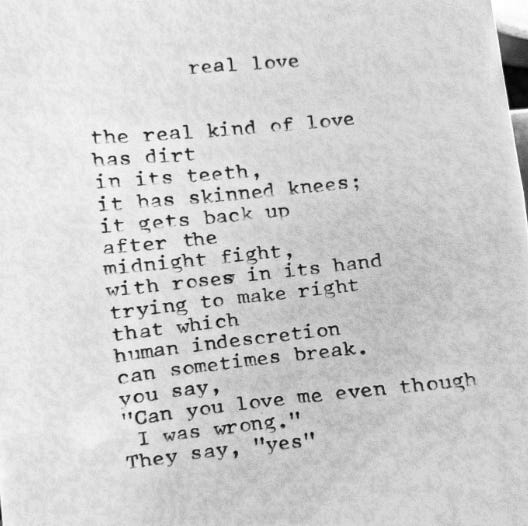 real love
the real kind of love
has dirt
in its teeth,
it has skinned knees;
it gets back up
after the
midnight fight,
with roses in its hand
trying to make right
that which
human indescretion
can sometimes break.
you say,
"Can you love me even though
I was wrong."
They say, "yes"